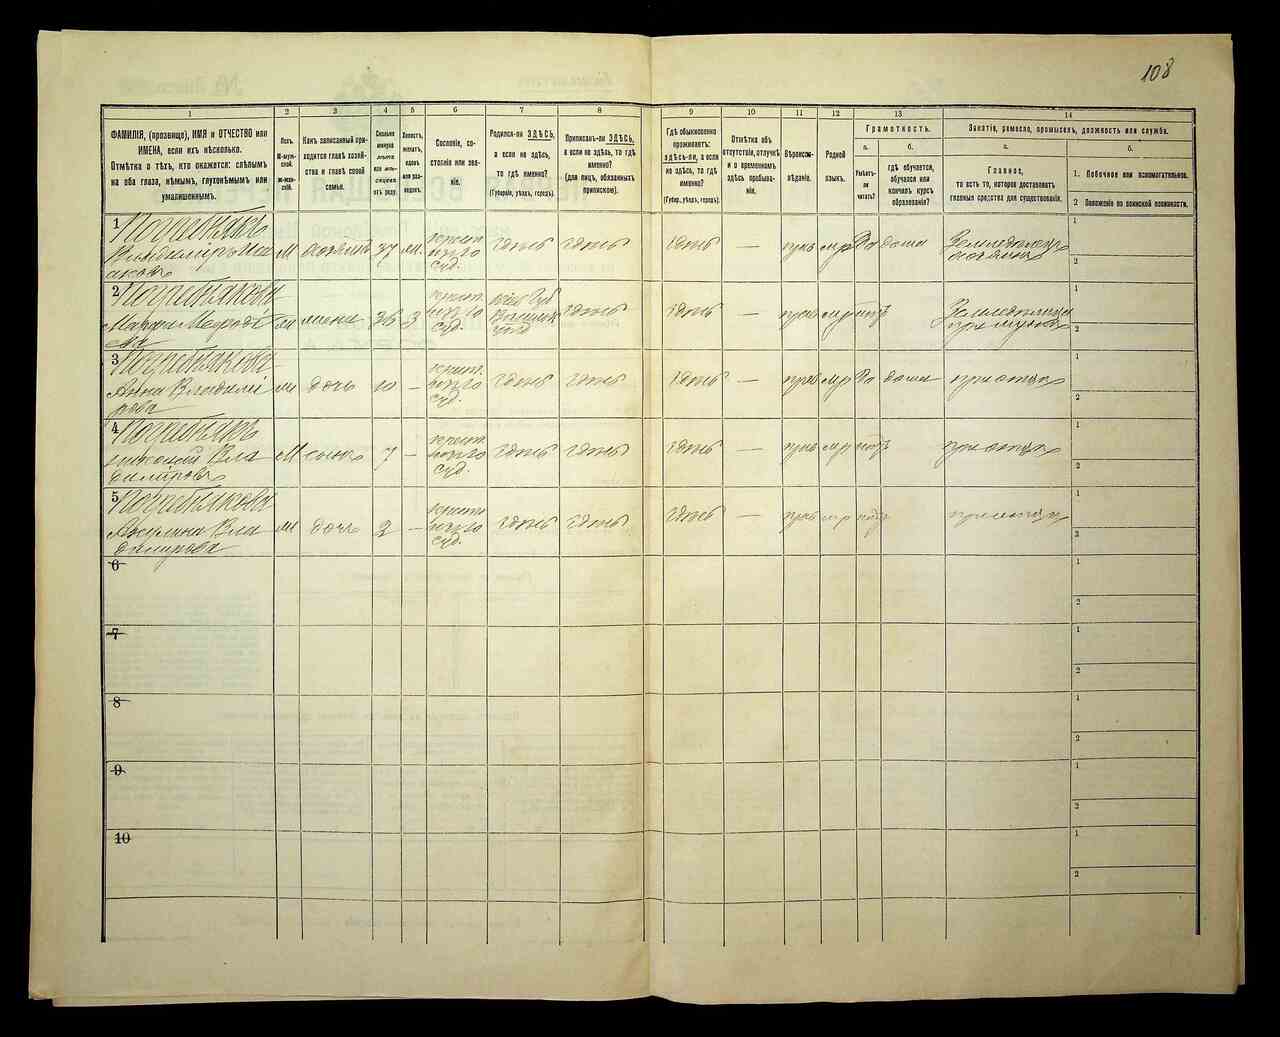 108
1 2 3 4 5 6 7 8 9 10 11 12 13 14
ФАМИЛІЯ, (прозвище), ИМЯ и ОТЧЕСТВО или
ИМЕНА, если ихъ нѣсколько.
Отмѣтка о тѣхъ, кто окажется: слѣпымъ
на оба глаза, нѣмымъ, глухонѣмымъ или
умалишеннымъ.
Полъ.
М-муж-
ской.
Ж-жен-
скій.
Какъ записанный при-
ходится главѣ хозяй-
ства и главѣ своей
семьи.
Сколько
минуло
лѣтъ
или мѣ-
сяцевъ
отъ роду.
Холостъ,
женатъ,
вдовъ
или раз-
веденъ.
Сословіе, со-
стояніе или зва-
ніе.
Родился-ли ЗДѢСЬ,
а если не здѣсь,
то гдѣ именно?
(Губернія, уѣздъ, городъ).
Приписанъ-ли ЗДѢСЬ,
а если не здѣсь, то гдѣ
именно?
(для лицъ, обязанныхъ
припискою).
Гдѣ обыкновенно
проживаетъ:
здѣсь-ли, а если
не здѣсь, то гдѣ
именно?
(Губер., уѣздъ, городъ).
Отмѣтка объ
отсутствіи, отлучкѣ
и о временномъ
здѣсь пребыва-
ніи.
Вѣроиспо-
вѣданіе.
Родной
языкъ.
Грамотность.
а. б.
Умѣетъ-
ли
читать?
гдѣ обучается,
обучался или
кончилъ курсъ
образованія?
Занятіе, ремесло, промыселъ, должность или служба.
а. б.
Главное,
то есть то, которое доставляетъ
главныя средства для существованія.
1. Побочное или вспомогательное.
2 Положеніе по воинской повинности.
1 Погребнякъ
Владиміръ
М хозяинъ 37 здѣсь здѣсь здѣсь — прав мр да дома
1
2
2 Погребнякова
жена 36 3 здѣсь здѣсь — прав мр нѣтъ
1
2
3 Погребнякова
Анна Владимі
рова
дочь 10 — здѣсь здѣсь здѣсь — прав мр да дома при отцѣ
1
2
4 Погребнякъ
Вла
диміровъ
М сынъ 7 — здѣсь здѣсь здѣсь — прав мр нѣтъ при отцѣ
1
2
5 Погребнякова
Акулина Вла
димірова
дочь 2 — здѣсь здѣсь здѣсь — прав мр нѣтъ при отцѣ
1
2
6
1
2
7
1
2
8
1
2
9
1
2
10
1
2